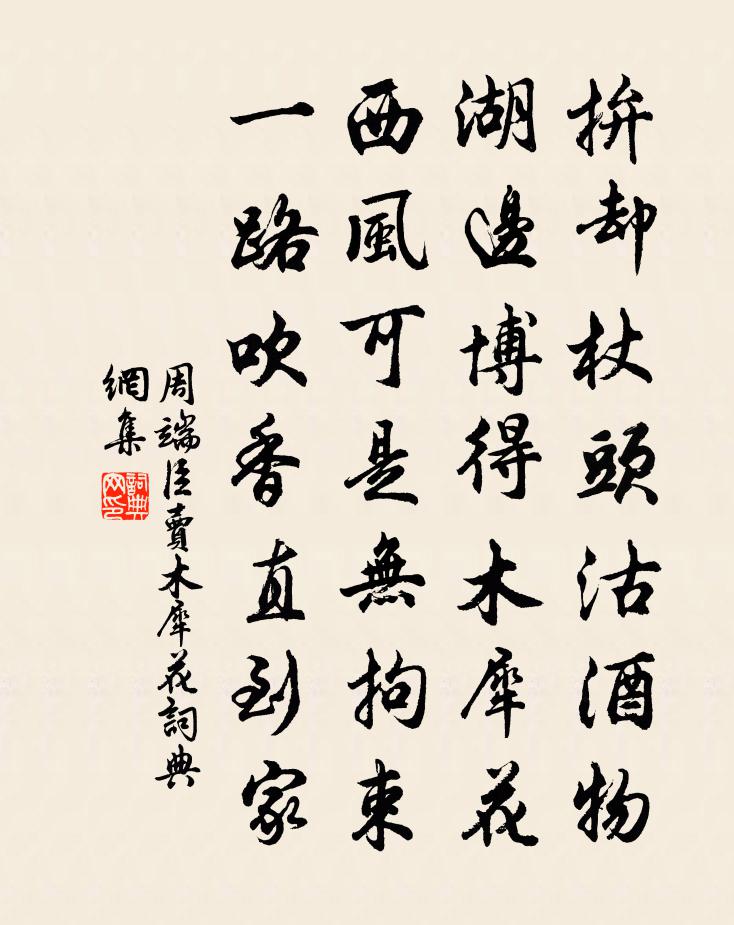 拚却杖頭沽酒物
湖邊博得木犀花
西風可是無拘束
一路吹香直到家
周端臣賣木犀花詞典
網集
詞典
网印